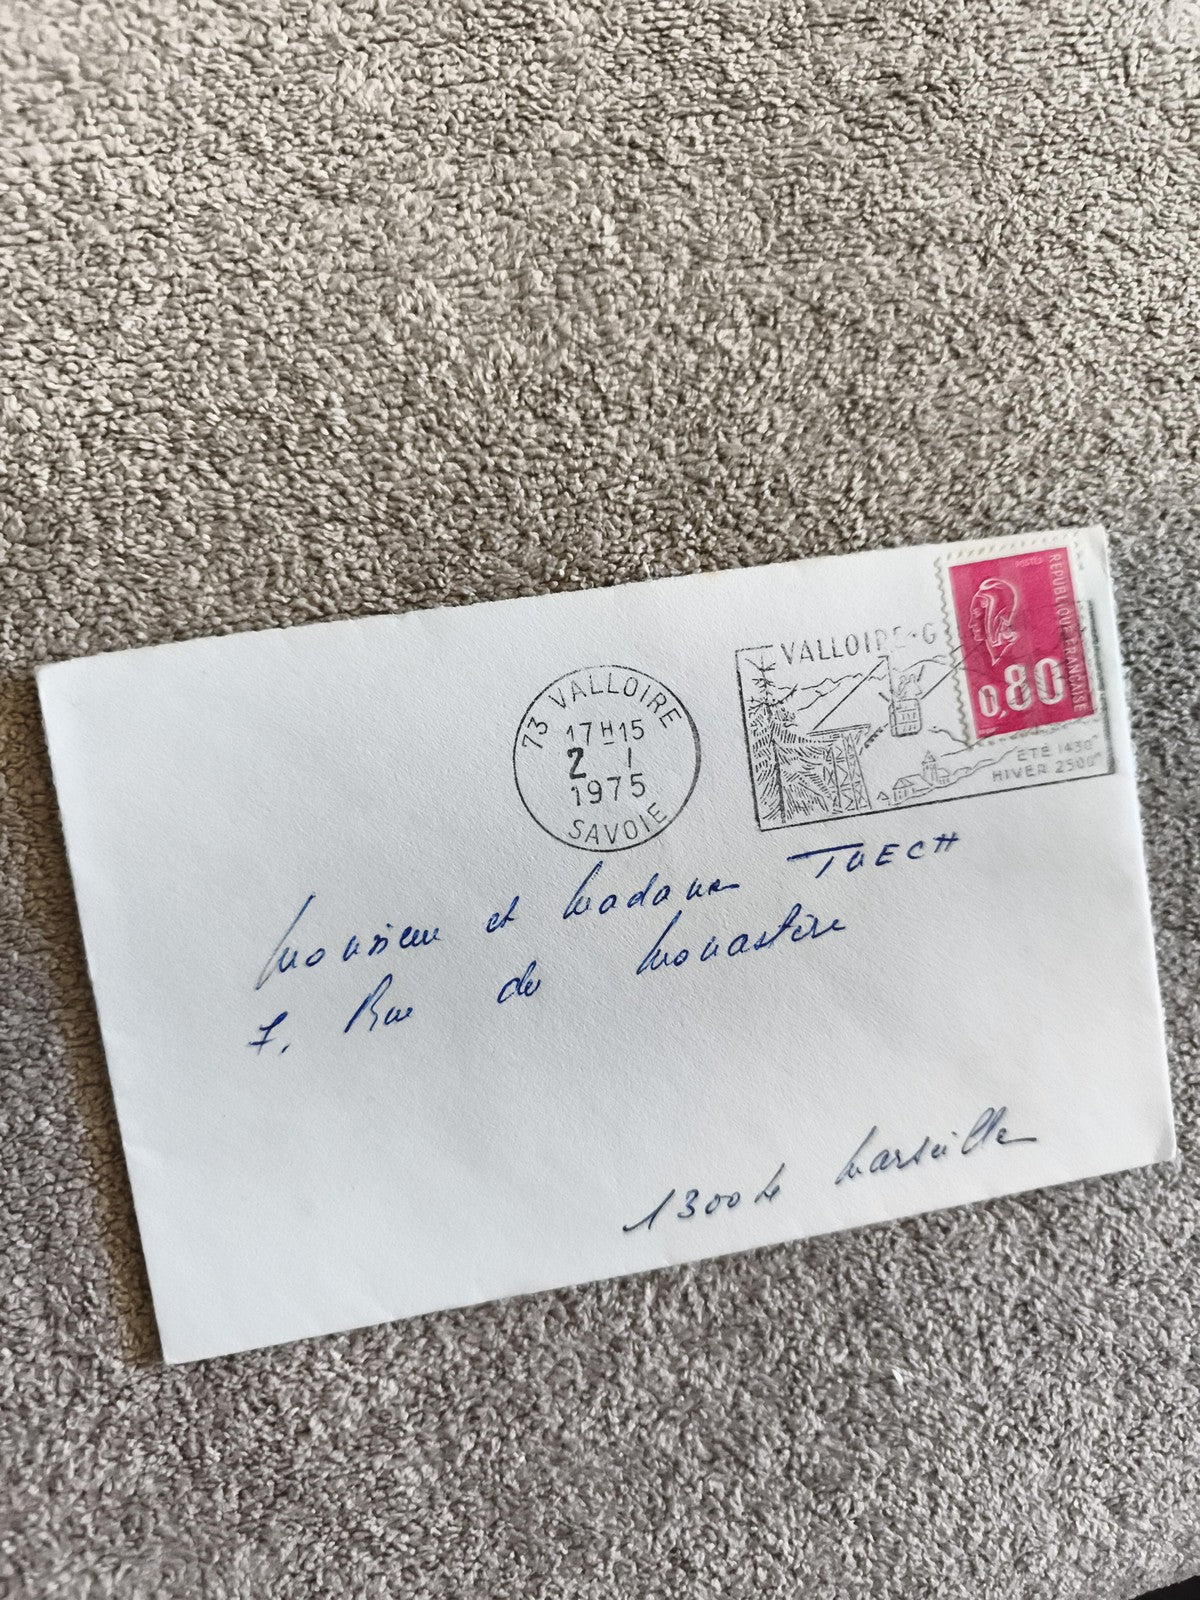 POSTES
REPUBLIQUE FRANÇAISE
0,80
VALLOIRE-G
ÉTÉ 1430m
HIVER 2500m
73 VALLOIRE
17H15
2 1
1975
SAVOIE
Monsieur et Madame TUECH
7, Rue du Monastère
13004 Marseille